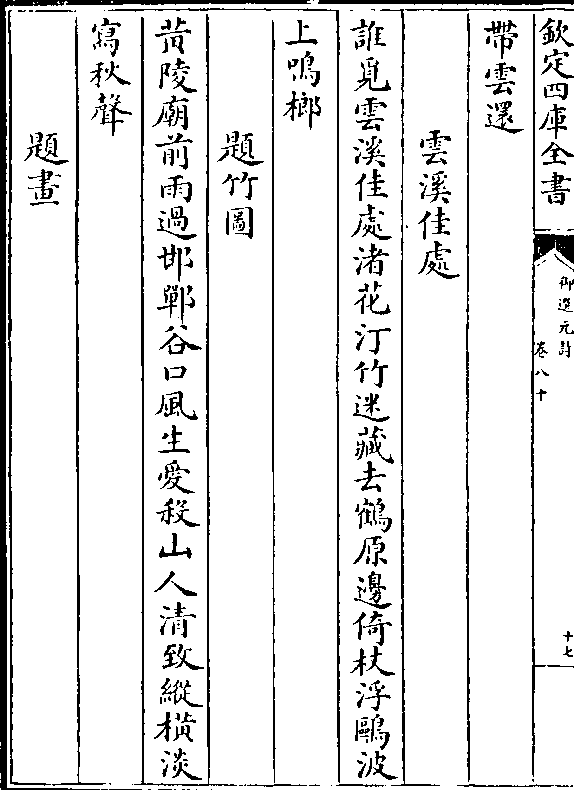 欽定四庫全書
御選元詩
卷八十
十七
帶雲還
雲溪佳處
誰覓雲溪佳處渚花汀竹迷藏去鶴原邊倚杖浮鷗波
上鳴榔
題竹圖
黃陵廟前雨過邯鄲谷口風生愛殺山人清致縱橫淡
寫秋聲
題畫